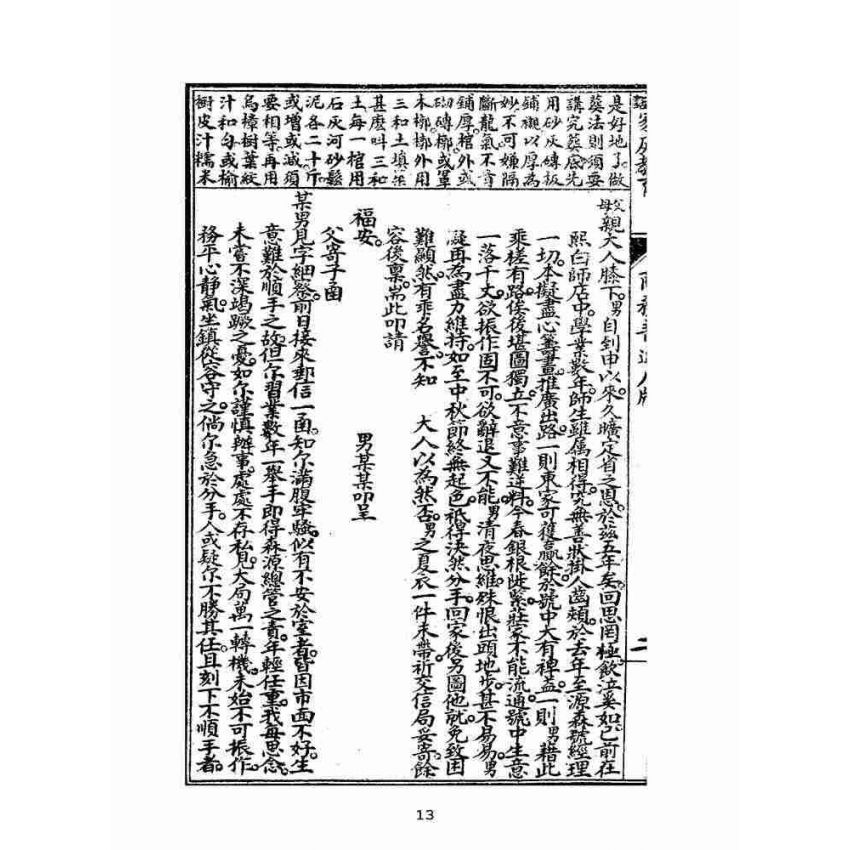 是好地了。做
葬法則須要
講究。葬底先
用砂灰磚板
鋪襯以厚為
妙。不可嫌隔
斷龍氣不肯
鋪厚。棺外或
砌磚槨或單
木槨。槨外用
三和土填築
甚麼叫三和
土。每一棺用
石灰河砂鬆
泥各二十斤。
或增或減須
要相等。再用
烏樟樹葉絞
汁和勻。或榆
樹皮汁糯米
父母親大人膝下。男自到申以來。久曠定省之恩。於茲五年矣。回思罔極。飲泣奚如。已前在
熙白師店中。學業數年。師生雖屬相得。究無善狀掛人齒頰。於去年至源森號經理
一切。本擬盡心籌畫。推廣出路。一則東家可獲贏餘。於號中大有裨益。一則男藉此
乘槎有路。俟後堪圖獨立。不意事難逆料。今春銀根陡緊。莊家不能流通。號中生意
一落千丈。欲振作固不可。欲辭退又不能。男清夜思維。殊恨出頭地步。甚不易易。男
凝再為盡力維持。如至中秋節終無起色。祇得決然分手。回家後另圖他就。免致困
難。顯然有乖名譽。不知 大人以為然否。男之夏衣一件未帶。祈交信局妥寄。餘
容後稟。耑此叩請
福安。 男某某叩呈
父寄子函
某男見字細察。前日接來郵信一函。知尔滿腹牢騷。似有不安於室者。皆因市面不好。生
意難於順手之故。但尔習業數年。一舉手即得森源總管之責。年輕任重。我每思念。
未嘗不深竭蹶之憂。如尔謹慎辦事。處處不存私見。大局萬一轉機。未始不可振作。
務平心靜氣。坐鎮從容守之。倘尔急於分手。人或疑尔不勝其任。且刻下不順手者。
二
13